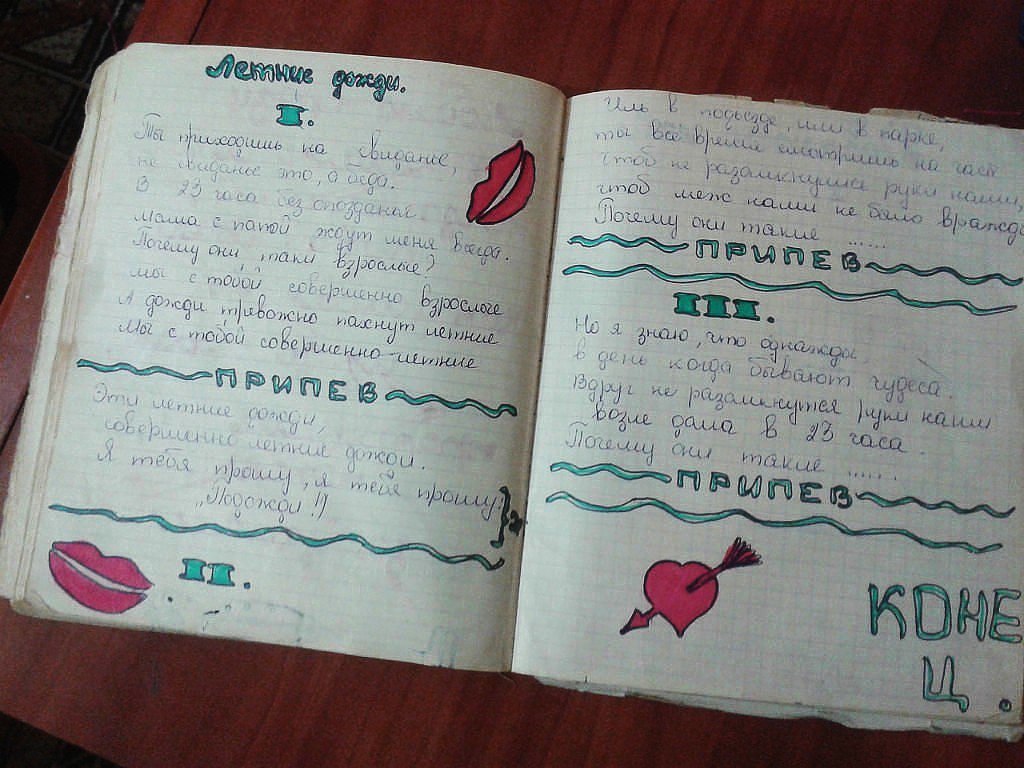 Летние дожди.
I.
Ты приходишь на свиданье,
не свиданье это, а беда.
В 23 часа без опозданья
мама с папой ждут меня всегда.
Почему они таки взрослые?
мы с тобой совершенно взрослоге
А дожди тревожно пахнут летние
Мы с тобой совершенно летние
ПРИПЕВ
Эти летние дожди,
совершенно летние дожди.
Я тебя прошу, я тебя прошу:
"Подожди!"
II.
Иль в подъезде, или в парке,
ты всё время смотришь на часы
чтоб не разомкнулись руки наши,
чтоб меж нами не было вражды
Почему они такие ......
ПРИПЕВ
III.
Но я знаю, что однажды
в день когда бывают чудеса.
Вдруг не разомкнутся руки наши
возле дома в 23 часа.
Почему они такие ......
ПРИПЕВ
КОНЕ
Ц.